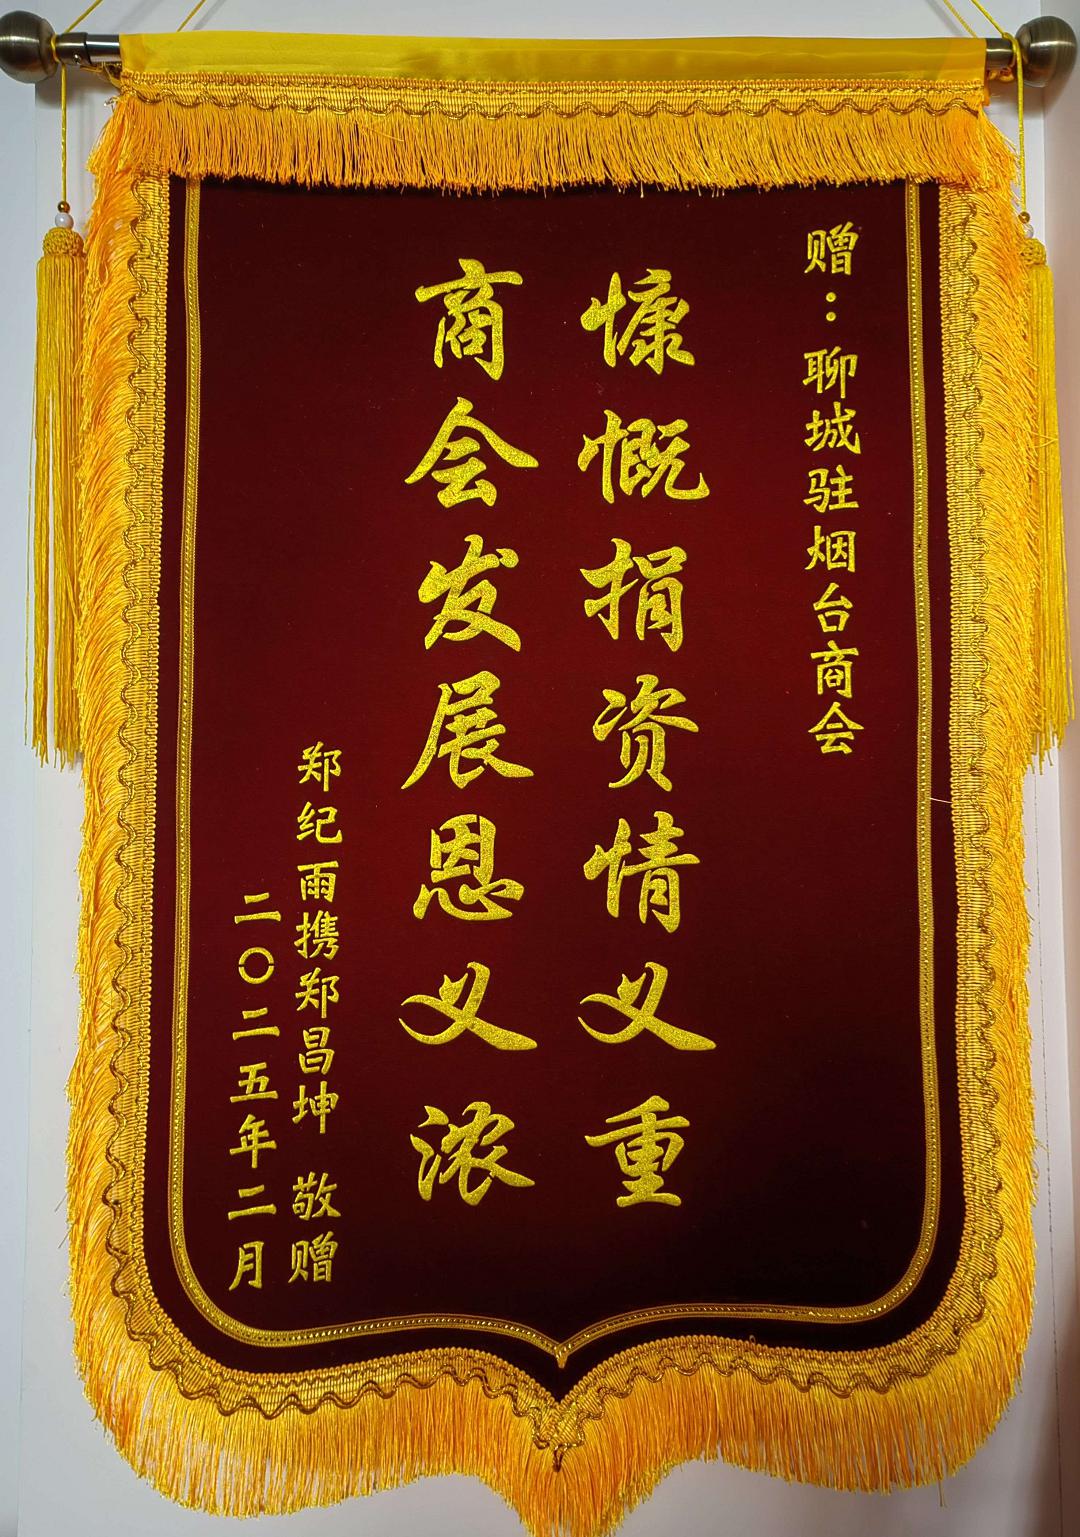 赠：聊城驻烟台商会
慷慨捐资情义重
商会发展恩义浓
郑纪雨携郑昌坤 敬赠
二〇二五年二月